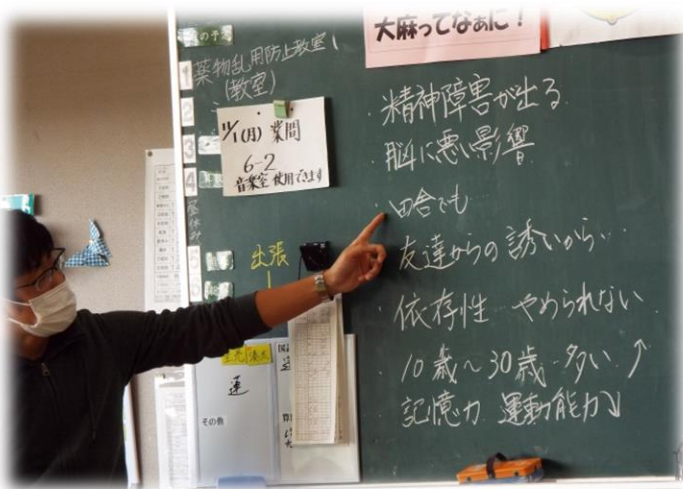 の予定
大麻ってなぁに!
1 薬物乱用防止教室
(教室)
2
3
4
昼休み
5
6
11/1(月) 業間
6-2
音楽室 使用できます
出張
・精神障害が出る
・脳に悪い影響
・田舎でも
友達からの誘いから…
・依存性 やめられない
・10歳~30歳 多い ↑
記憶力 運動能力↓
蓮
その他